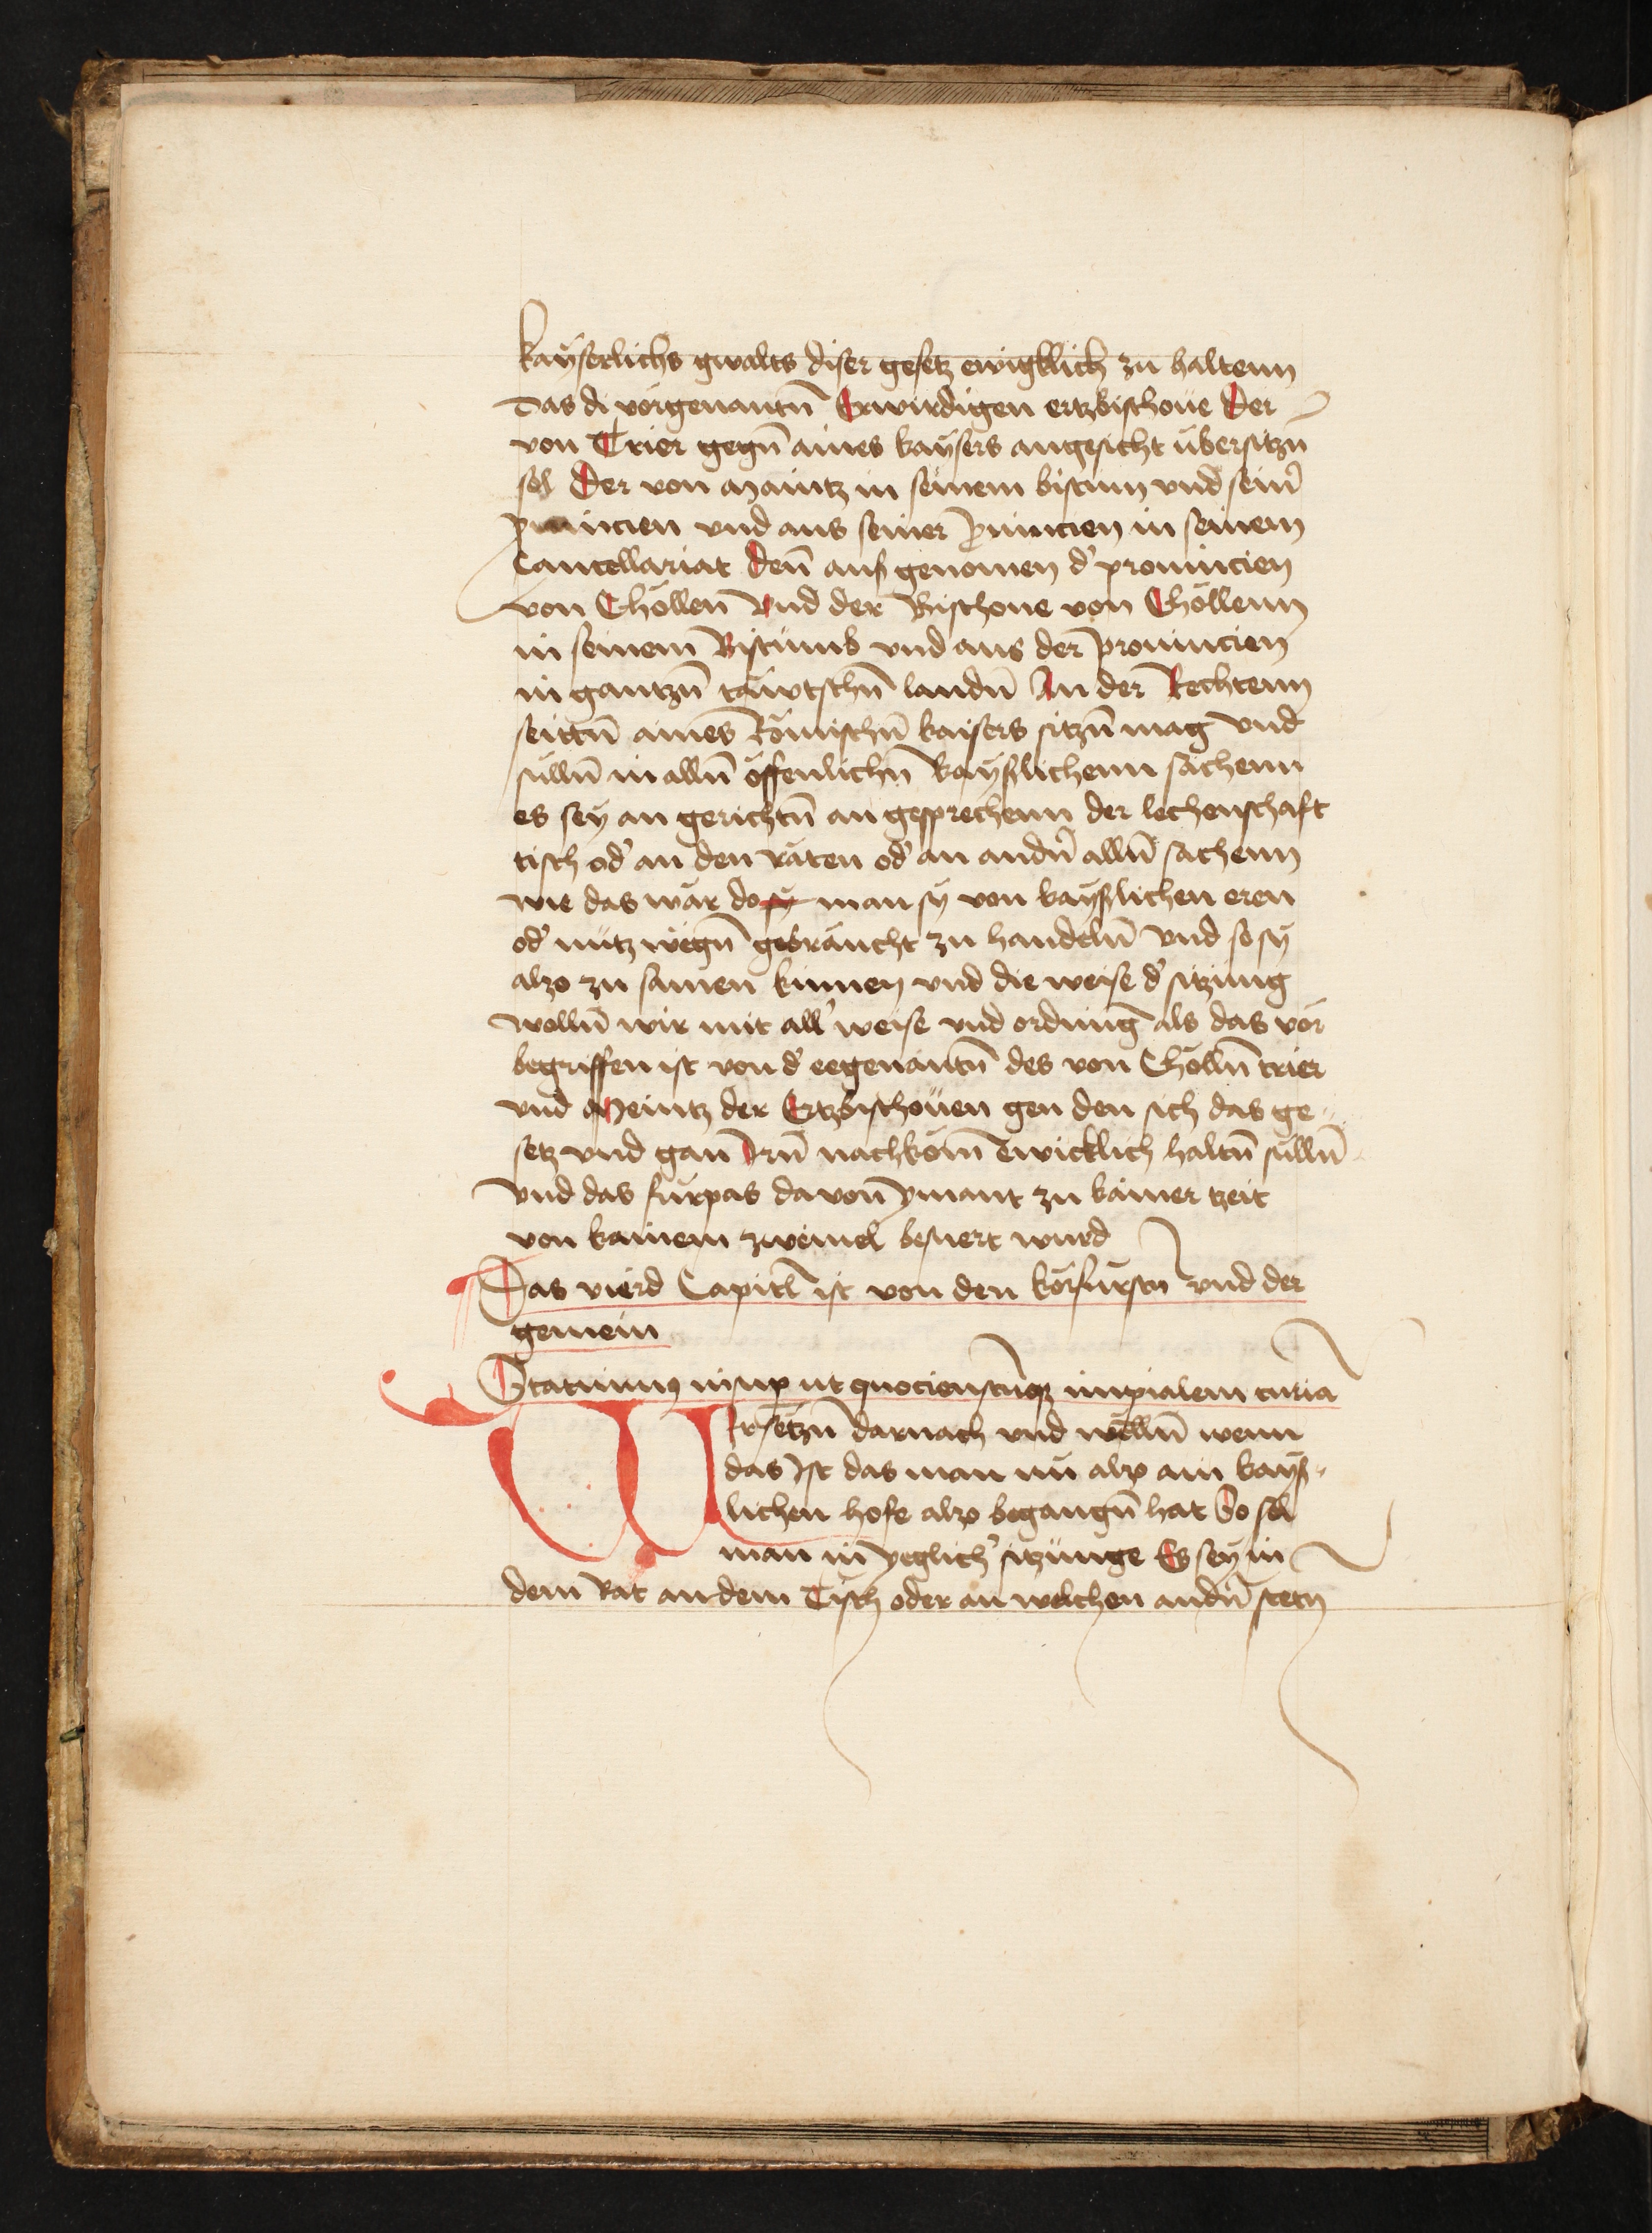 kaÿserlichs gwalts diser gesetz ewigklich zu haltenn
das di vorgenantn̄ Erwirdigen ertzbischoue Der
von Trier gegn̄ aines kaÿsers angesicht übersitzn̄
sol Der von Maintz in seinem bistum vnd sein̄
prouincien vnd aus seiner prouincien in seinem
Cancellariat Den̄ aus genomen d' prouincien
von Chöllen vnd der Bischoue von Chöllenn
in seinem Bistumb vnd aus der prouincien
in gantzn̄ täwtschn̄ landn̄ An der Rechtenn
seittn̄ aines Römischn̄ kaisers sitzn̄ mag vnd
sulln̄ in alln̄ öffenlichn̄ kaÿslichenn sachenn
es seÿ an gerichtn̄ an gesprechenn der lechenschaft
tisch od' an den räten od' an andn̄ alln̄ sachenn
wie das wär do sÿ man sÿ von kaÿslichen eren
od' nutz wegn̄ gebraucht zu handeln̄ vnd so sÿ
also zu samen kumen vnd die weise d' sitzung
wolln̄ wir mit all' weise vnd ordnung als das vor
begriffen ist von d' eegenantn̄ des von Cholln̄ trier
vnd Meintz der Ertzbischouen gen den sich das ge-
setz vnd gan Irn̄ nachkom̄ ewicklich haltn̄ sulln̄
vnd das furpas dauon ÿmant zu kainer tzeit
von kainem zweiuel beswert wurd
Das vierd Capitl ist von den korfurstn̄ vnd der
gemein
Statuimus insup ut quocienscūqz impialem curiā
Wir setzn̄ darnach vnd welln̄ wenn
das ist das man nu also ain kaÿs-
lichen hofe also begangn̄ hat So sol
man in ÿeglich' sitzunge Es seÿ in
dem Rat an dem Tisch oder an welchen andn̄ stetn̄